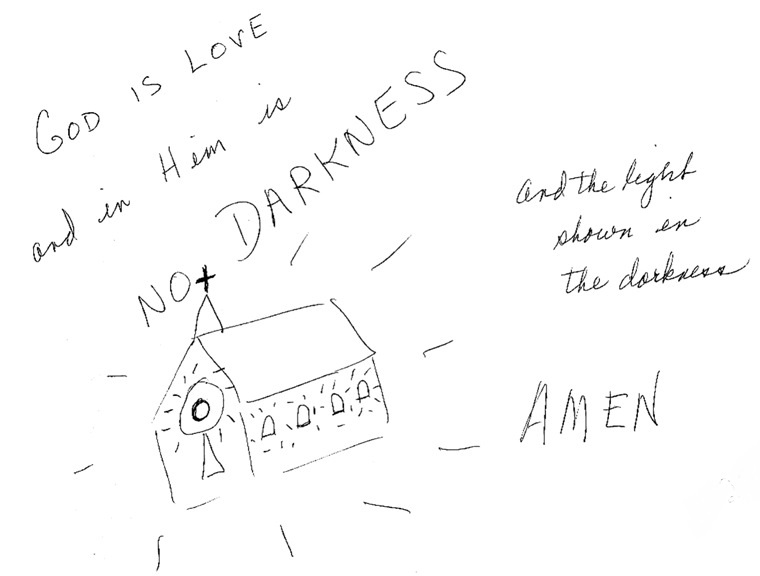 GOD IS LOVE
and in Him is
NO DARKNESS
and the light
shown in
the darkness
AMEN